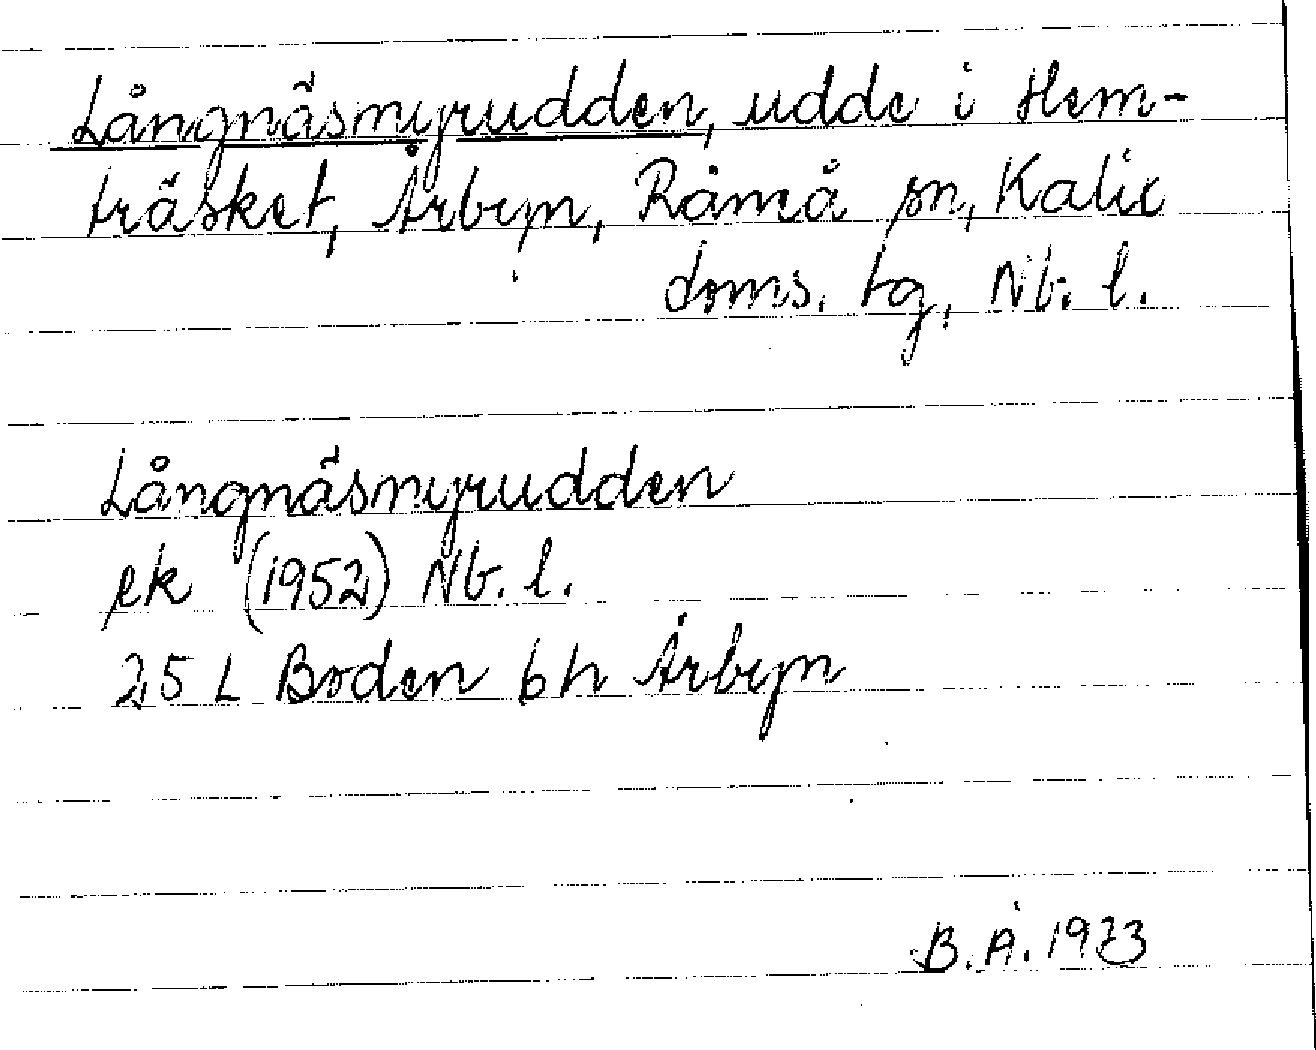 Långnäsmyrudden, udde i Hem-
träsket, Årbyn, Råneå sn, Kalix
doms. tg, Nb. l.
Långnäsmyrudden
ek (1952) Nb. l.
25 L Boden 6 h Årbyn
B. Å. 1973